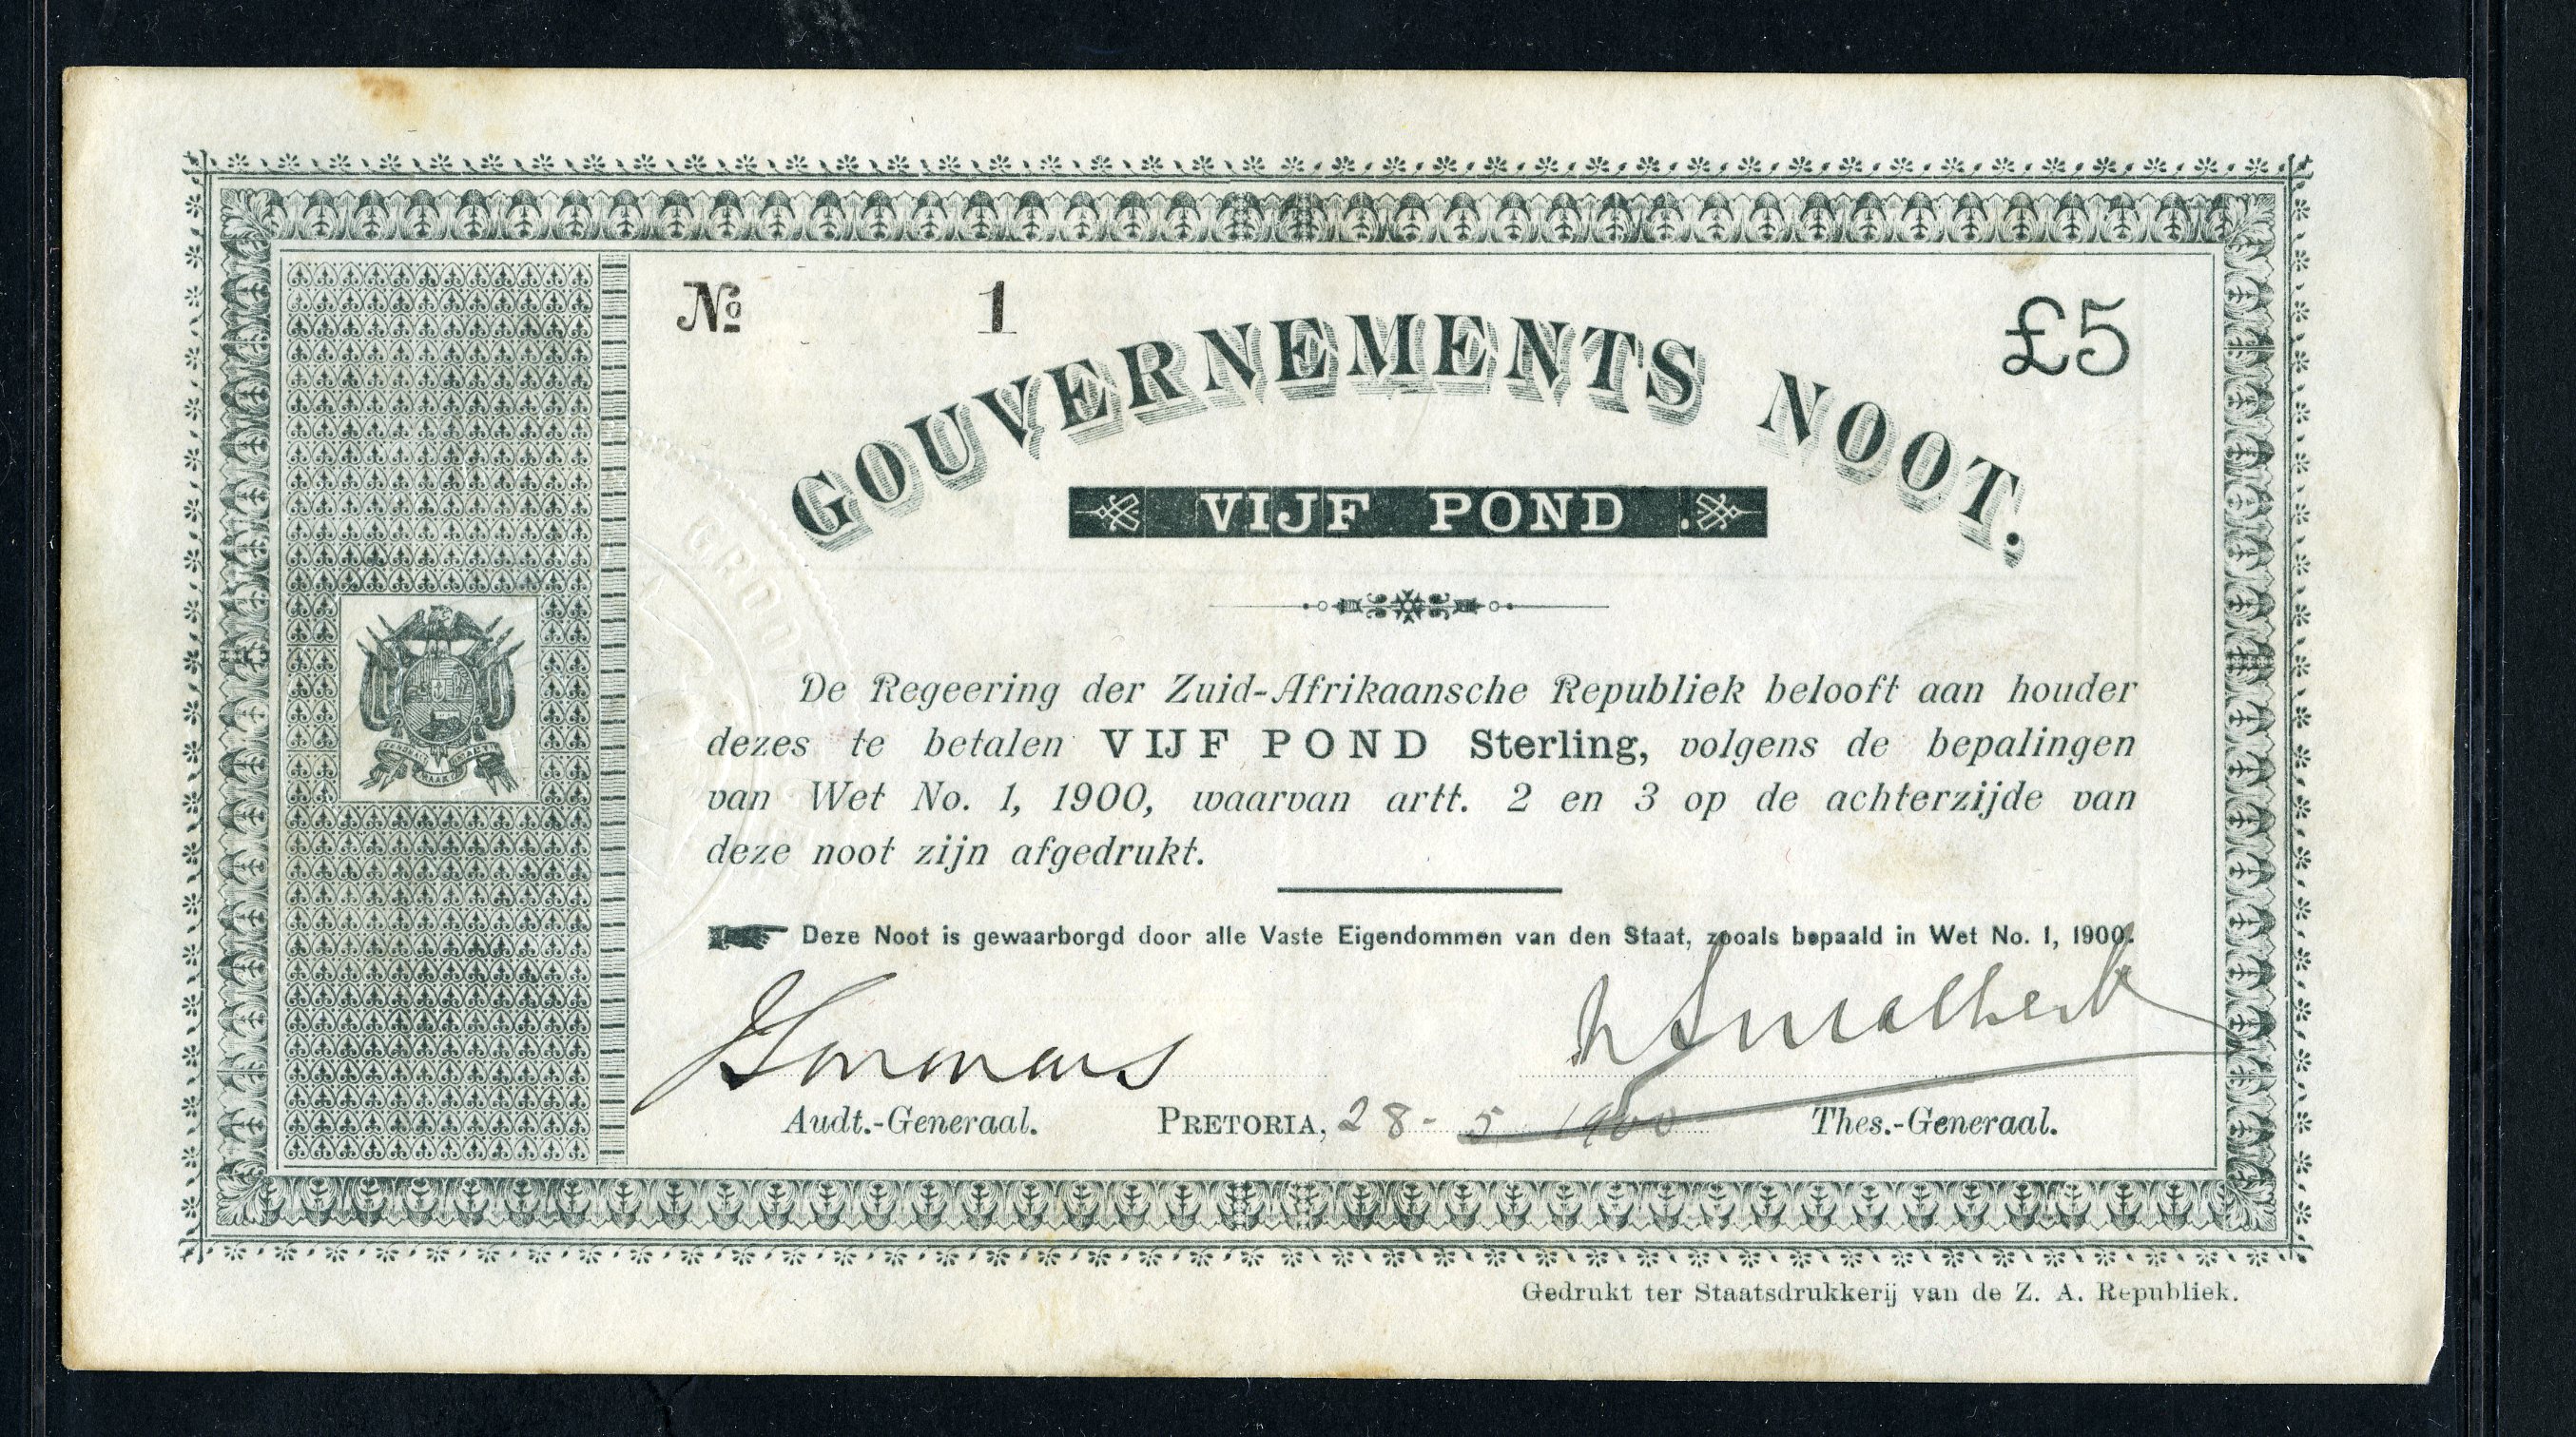 № 1
£5
GOUVERNEMENTS NOOT.
VIJF POND
De Regeering der Zuid-Afrikaansche Republiek belooft aan houder
dezes te betalen VIJF POND Sterling, volgens de bepalingen
van Wet No. 1, 1900, waarvan artt. 2 en 3 op de achterzijde van
deze noot zijn afgedrukt.
Deze Noot is gewaarborgd door alle Vaste Eigendommen van den Staat, zooals bepaald in Wet No. 1, 1900.
Audt.-Generaal. PRETORIA, 28-5 1900 Thes.-Generaal.
Gedrukt ter Staatsdrukkerij van de Z. A. Republiek.